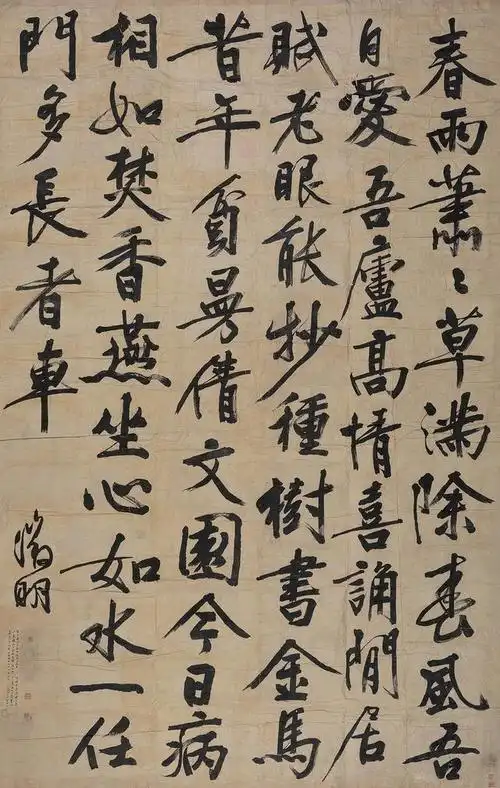 春雨蕭〻草滿除春風吾
自愛吾廬高情喜誦閒居
賦老眼能抄種樹書金馬
昔年貧曼倩文園今日病
相如焚香燕坐心如水一任
門多長者車
徵明